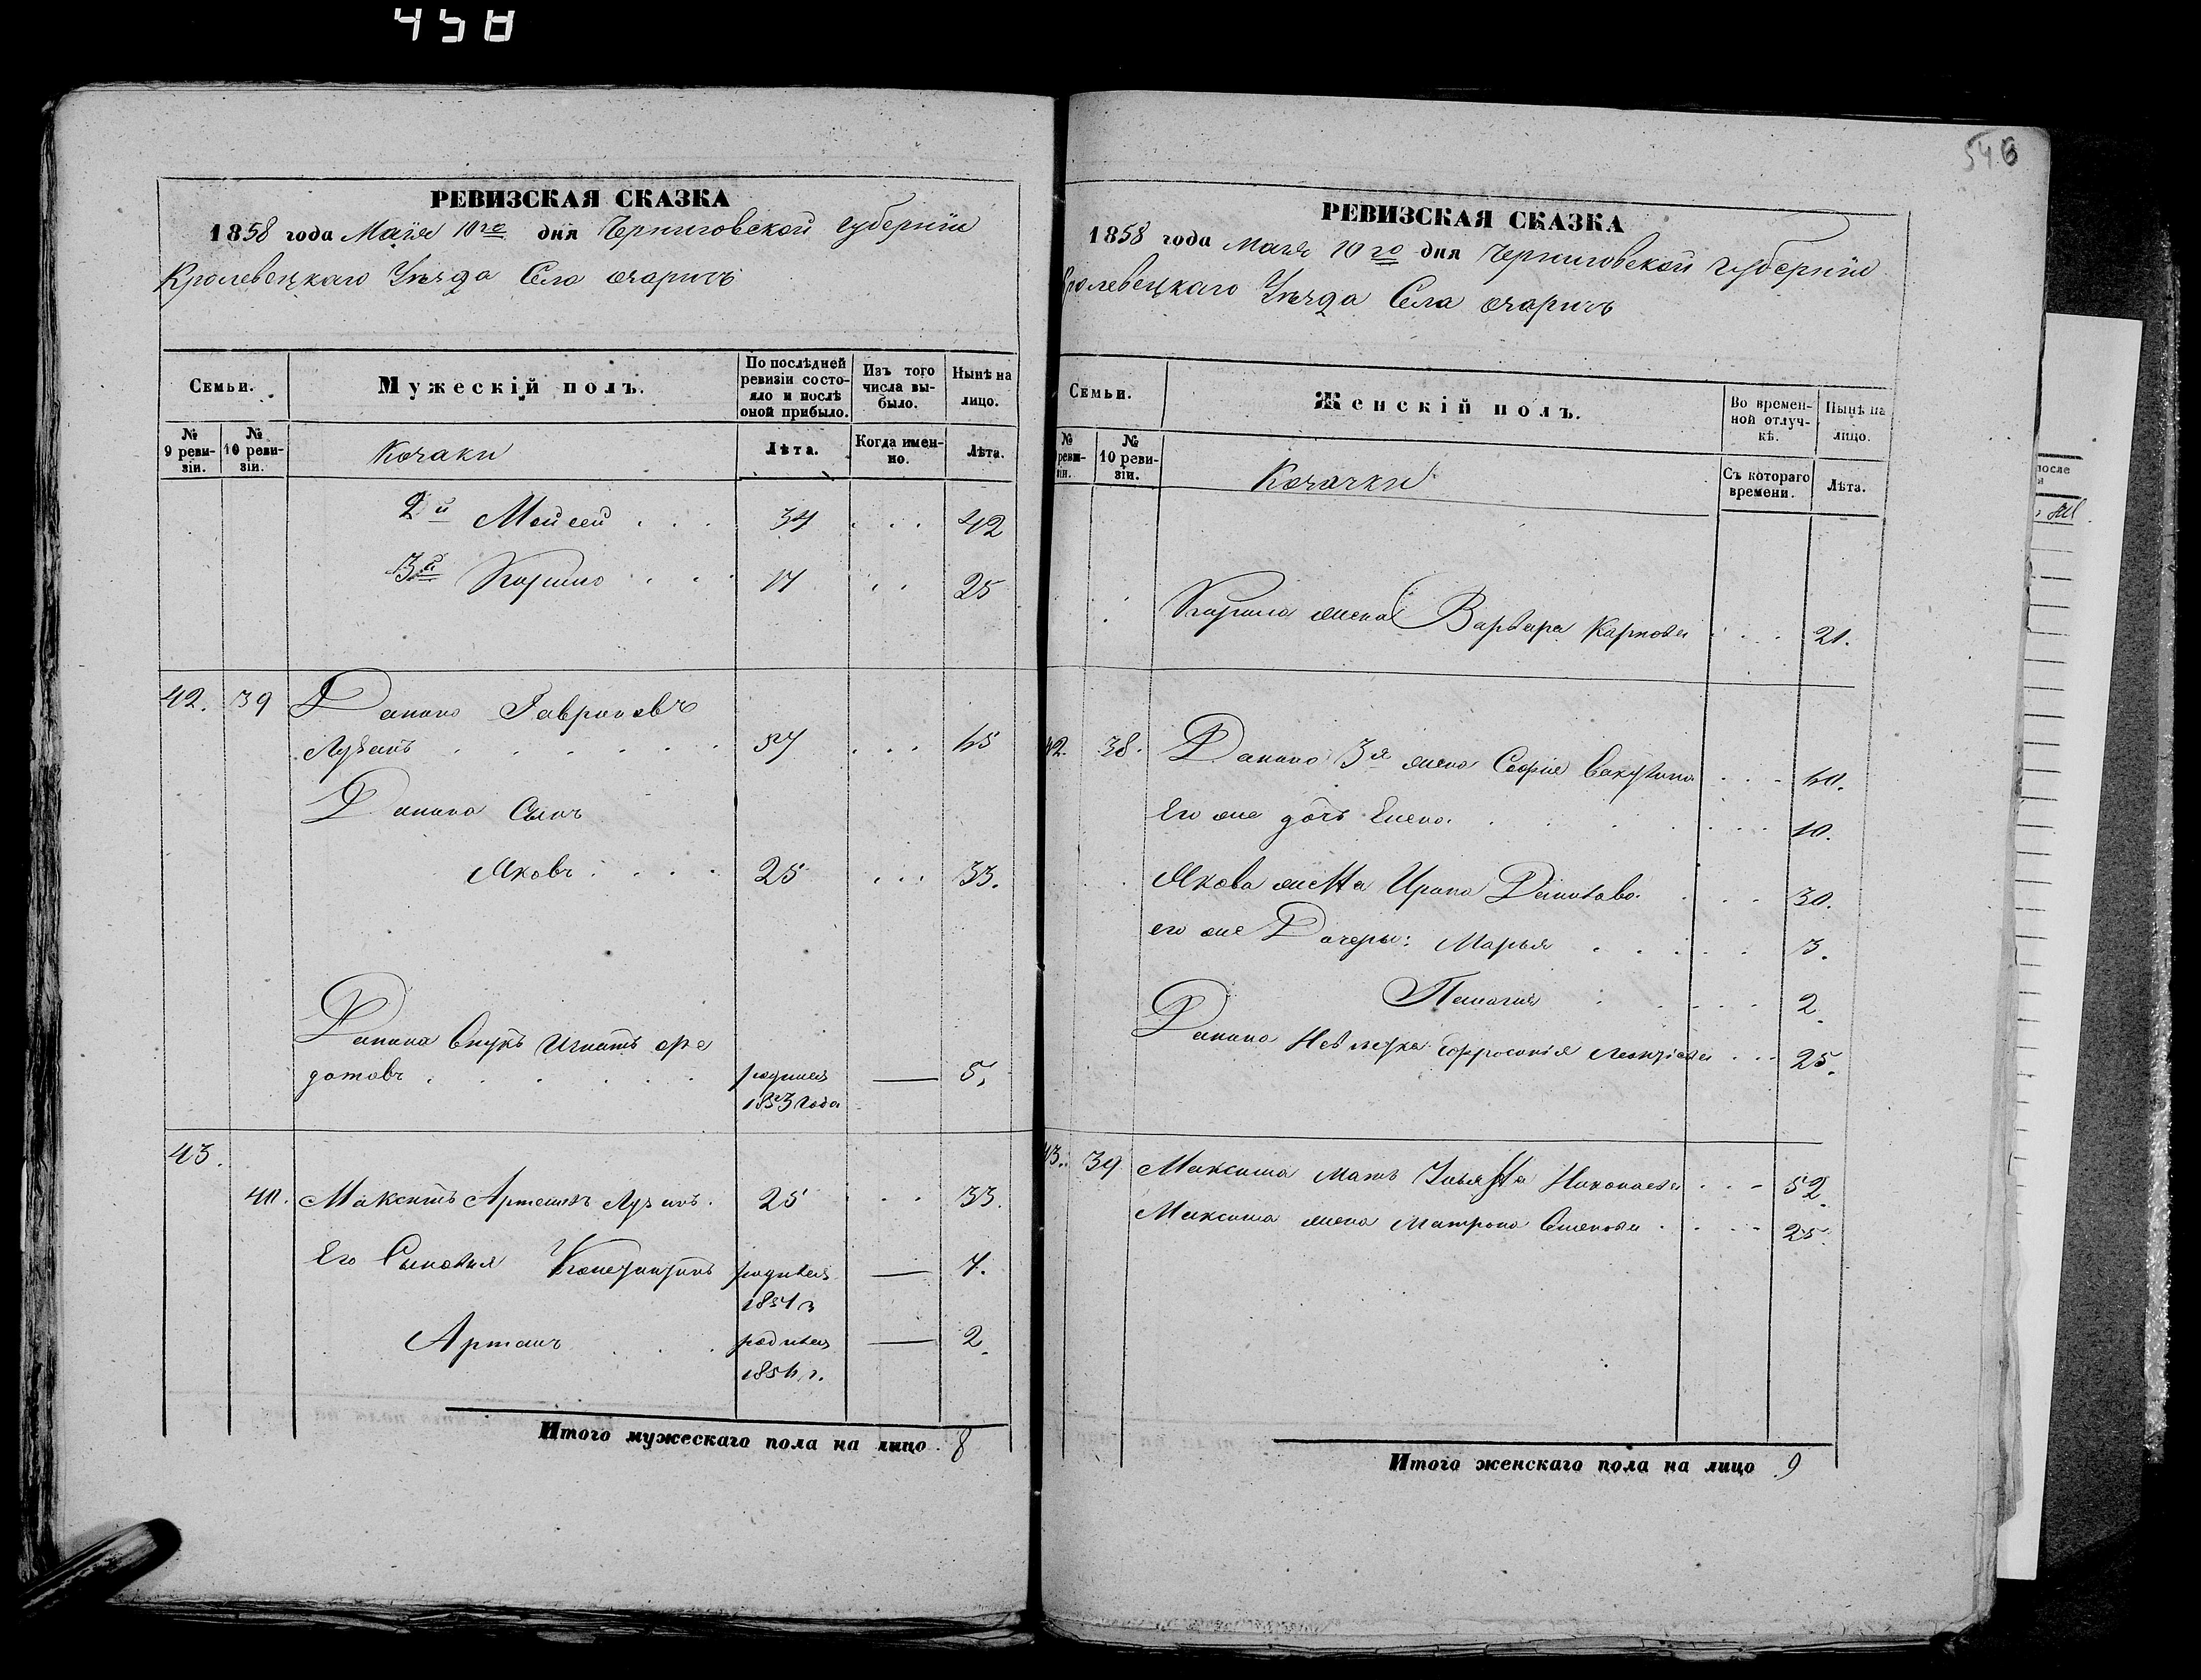 458
546
РЕВИЗСКАЯ СКАЗКА
1858 года Маія 10го дня Черниговской губерніи
Кролевецкаго Уѣзда Село
Семьи.
Мужескій полъ.
По послѣдней ревизіи состояло и послѣ оной прибыло.
Изъ того числа выбыло.
Нынѣ на лицо.
№ 9 ревизіи.
№ 10 ревизіи.
Козаки
Лѣта.
Когда именно.
Лѣта.
2й Мойсей . . . 34 . . . 42
3й . . . 17 . . 25
42. 39 Данило Гавриловъ
. . . . . . 57 . . . 65
Данила Сынъ
Яковъ . . . . 25 . . . 33.
Данила Внукъ Игнатъ Фе
дотовъ . . . . . . родился — 5.
1853 года
43.
40. Максимъ Артемовъ 25 . . . 33.
Его Сыновья Константинъ родился — 7.
1851 г
Артемъ . . . родился — 2.
1856 г.
Итого мужескаго пола на лицо 8
РЕВИЗСКАЯ СКАЗКА
1858 года Маія 10го дня Черниговской губерніи
Кролевецкаго Уѣзда Села
Семьи.
Женскій полъ.
Во временной отлучкѣ.
Нынѣ на лицо.
№ реви- зіи.
№ 10 ревизіи.
Козачки
Съ котораго времени.
Лѣта.
жена Варвара Карпова . . . 21.
42. 38. Данила 3я жена Софія . . . 60.
Его же дочь Елена . . . . . . 10.
Якова жена Ирина . . . 30.
его же Дочери: Марья . . . . . 3.
Пелагия . . . . . 2.
Данила Невѣстка Ефросинія . . . 25.
43. 39 Максима мать Ульяна Николаева . . . 52.
Максима жена Матрона Семенова . . . . 25.
Итого женскаго пола на лицо 9
после